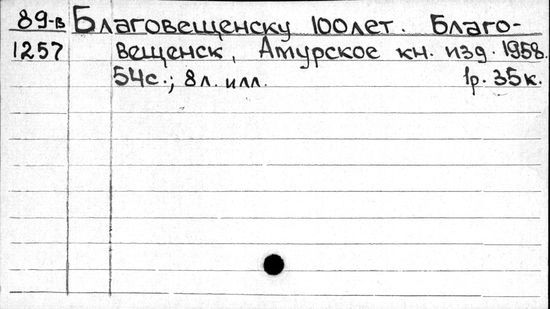 89-в Благовещенску 100лет. Благо-
1257 вещенск, Амурское кн. изд. 1958.
54с.; 8л. илл. 1р. 35к.